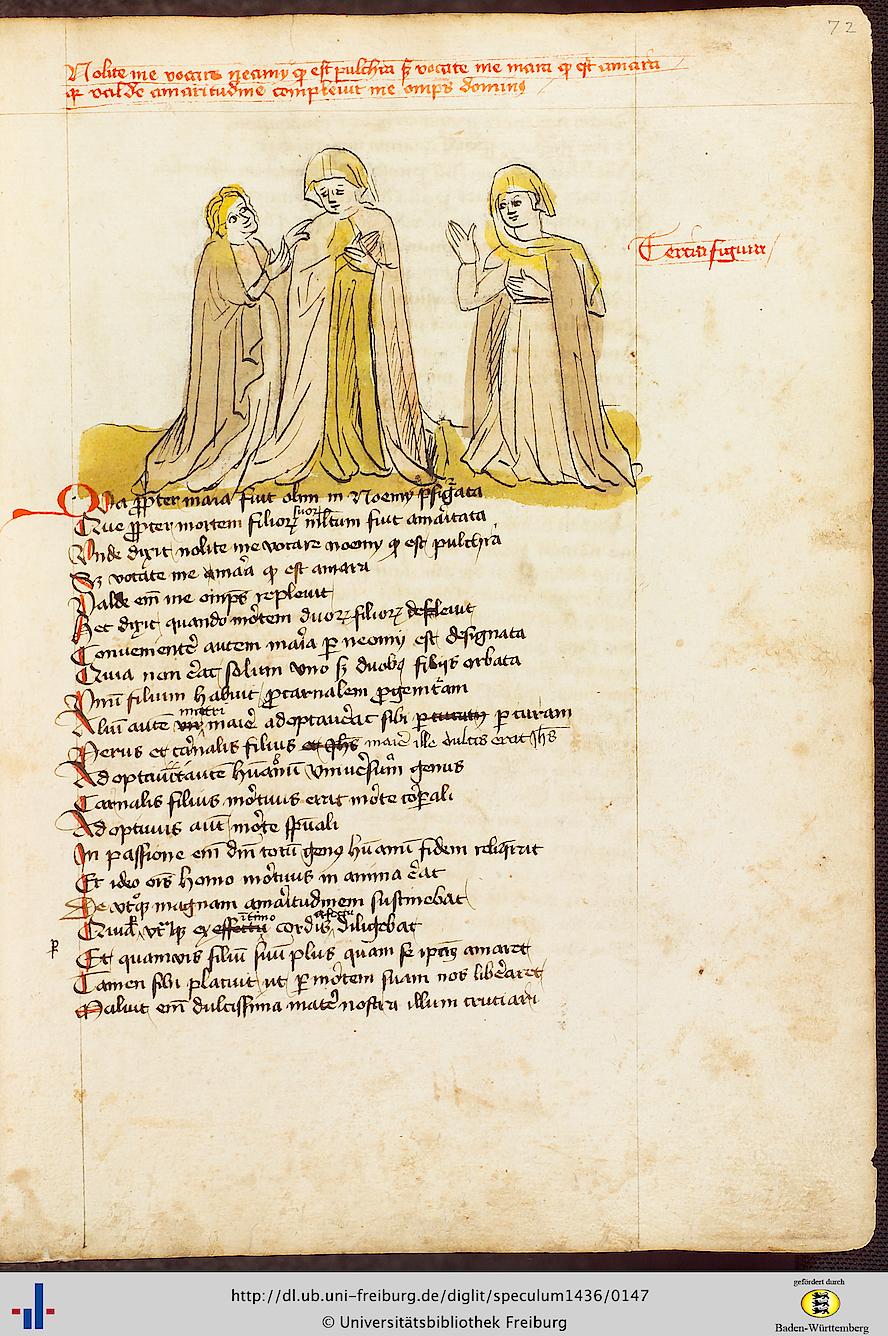 72
Nolite me vocare neemy q̄ est pulchra sꝫ vocate me mara q̄ est amara
qr valde amaritudine compleuit me omps dominus
Tercia figura
Qua ꝓpter maia fuit olim in Noemy p̄figᵃata
Que ꝓpter mortem filioꝝ suoꝝ mltum fuit amaritata
Vnde dixit nolite me vocare noemy q̄ est pulchra
Sꝫ vocate me amāa q̄ est amara
Valde em̄ me omps repleuit
Hec dixit quando mortem duoꝝ filioꝝ defleuit
Conuenienter autem maria ꝑ neomy est designata
Quia non erat solum vno sꝫ duobꝫ filijs orbata
Vnū filium habuit ꝑ carnalem progenitᵃam
Aliū autē matri maie adoptauerat sibi ꝑ curam
Verus et carnalis filius maie ille dulcis erat Jhs
Adoptiuus autē hūanū vniuersum genus
Carnalis filius mortuus erat morte corꝑali
Adoptiuus aut morte sp̄uali
In passione em̄ dm̄ totū genꝰ hūanū fidem reliqrit
Et ideo oīs homo mortuus in anima erat
De vtroqꝫ magnam amaritudinem sustinebat
Quia vtrūqꝫ ex effectu itimo cordis affectu diligebat
ꝑ
Et quamuis filiū suū plus quam se ipam amaret
Tamen sibi placuit ut ꝑ mortem suam nos liberaret
Maluit em̄ dulcissima mater nostra illum cruciari
http://dl.ub.uni-freiburg.de/diglit/speculum1436/0147
© Universitätsbibliothek Freiburg
gefördert durch
Baden-Württemberg